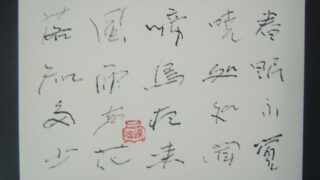 春眠不覺
曉処処聞
啼鳥夜来
風雨声花
落知多少